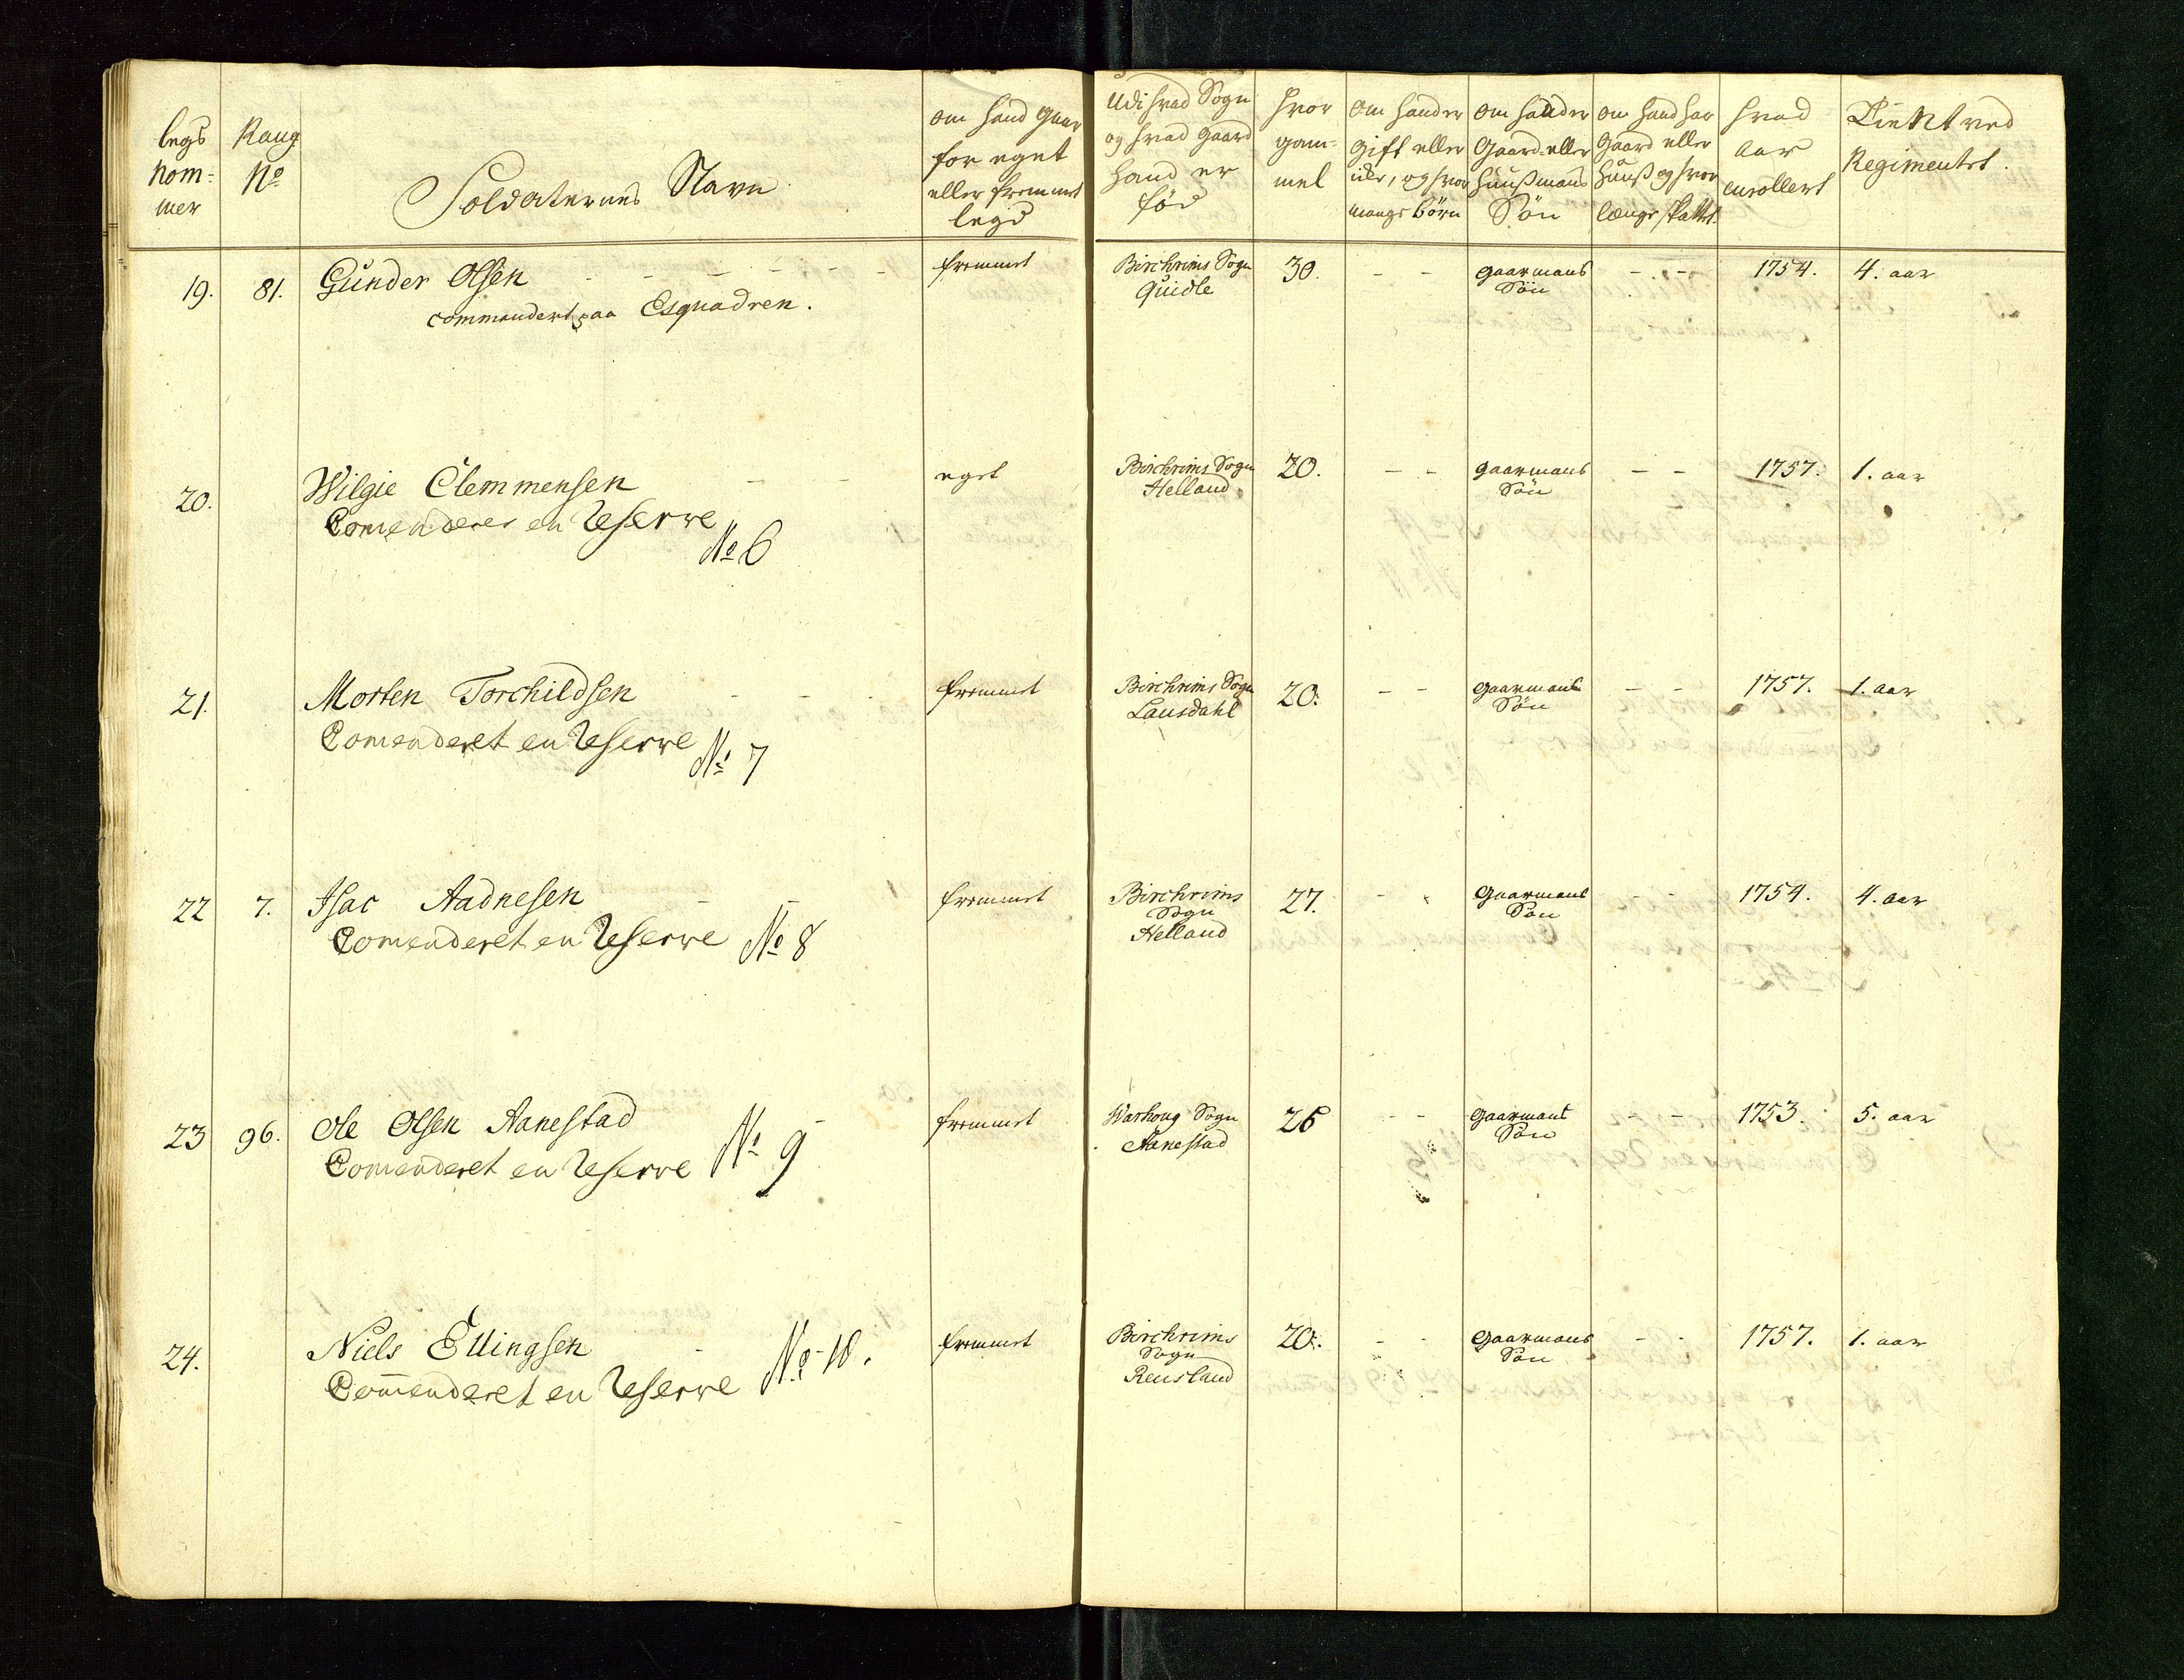 legs Nom- mer
Rang No
Soldaternes Navn
om hand gaar for eget eller fremmet legd
Udi hvad Sogn og hvad gaard hand er född
hvor gam- mel
om hand er gift eller icke, og hvor mange börn
om hand er Gaard- eller huusmans Sön
om hand har gaard eller huus og hvor længe
hvad aar enrollert
Tient ved Regimentet.
19. 81. Gunder Olsen - - - - - - fremmet Birchrims Sogn 30. - - gaarmans - - 1754. 4. aar
commandert paa Esquadren. Guidle Sön
20. Wilgie Clemmensen - - eget Birchrims Sogn 20. - - gaarmans - - 1757. 1. aar
Comenderer en Reserve Helland. Sön
No 6
21. Morten Torchildsen - - - fremmet Birchrims Sogn 20. - - gaarmans - - 1757. 1. aar
Comenderet en Reserve Lausdahl Sön
No 7
22 7. Isac Aadnesen - - fremmet Birchrims 27. - - gaarmans - - 1754. 4. aar
Sogn Sön
Comenderet en Reserve No 8 Helland
23 96. Ole Olsen Aanestad - fremmet Warhoug Sogn 26 - - gaarmans - - 1753. 5. aar
Comenderet en Reserve No 9 Aanestad Sön
24. Niels Ellingsen - No 10. fremmet Birchrims 20. - - gaarmans - - 1757. 1. aar
Sogn Sön
Comenderet en Reserve Reusland